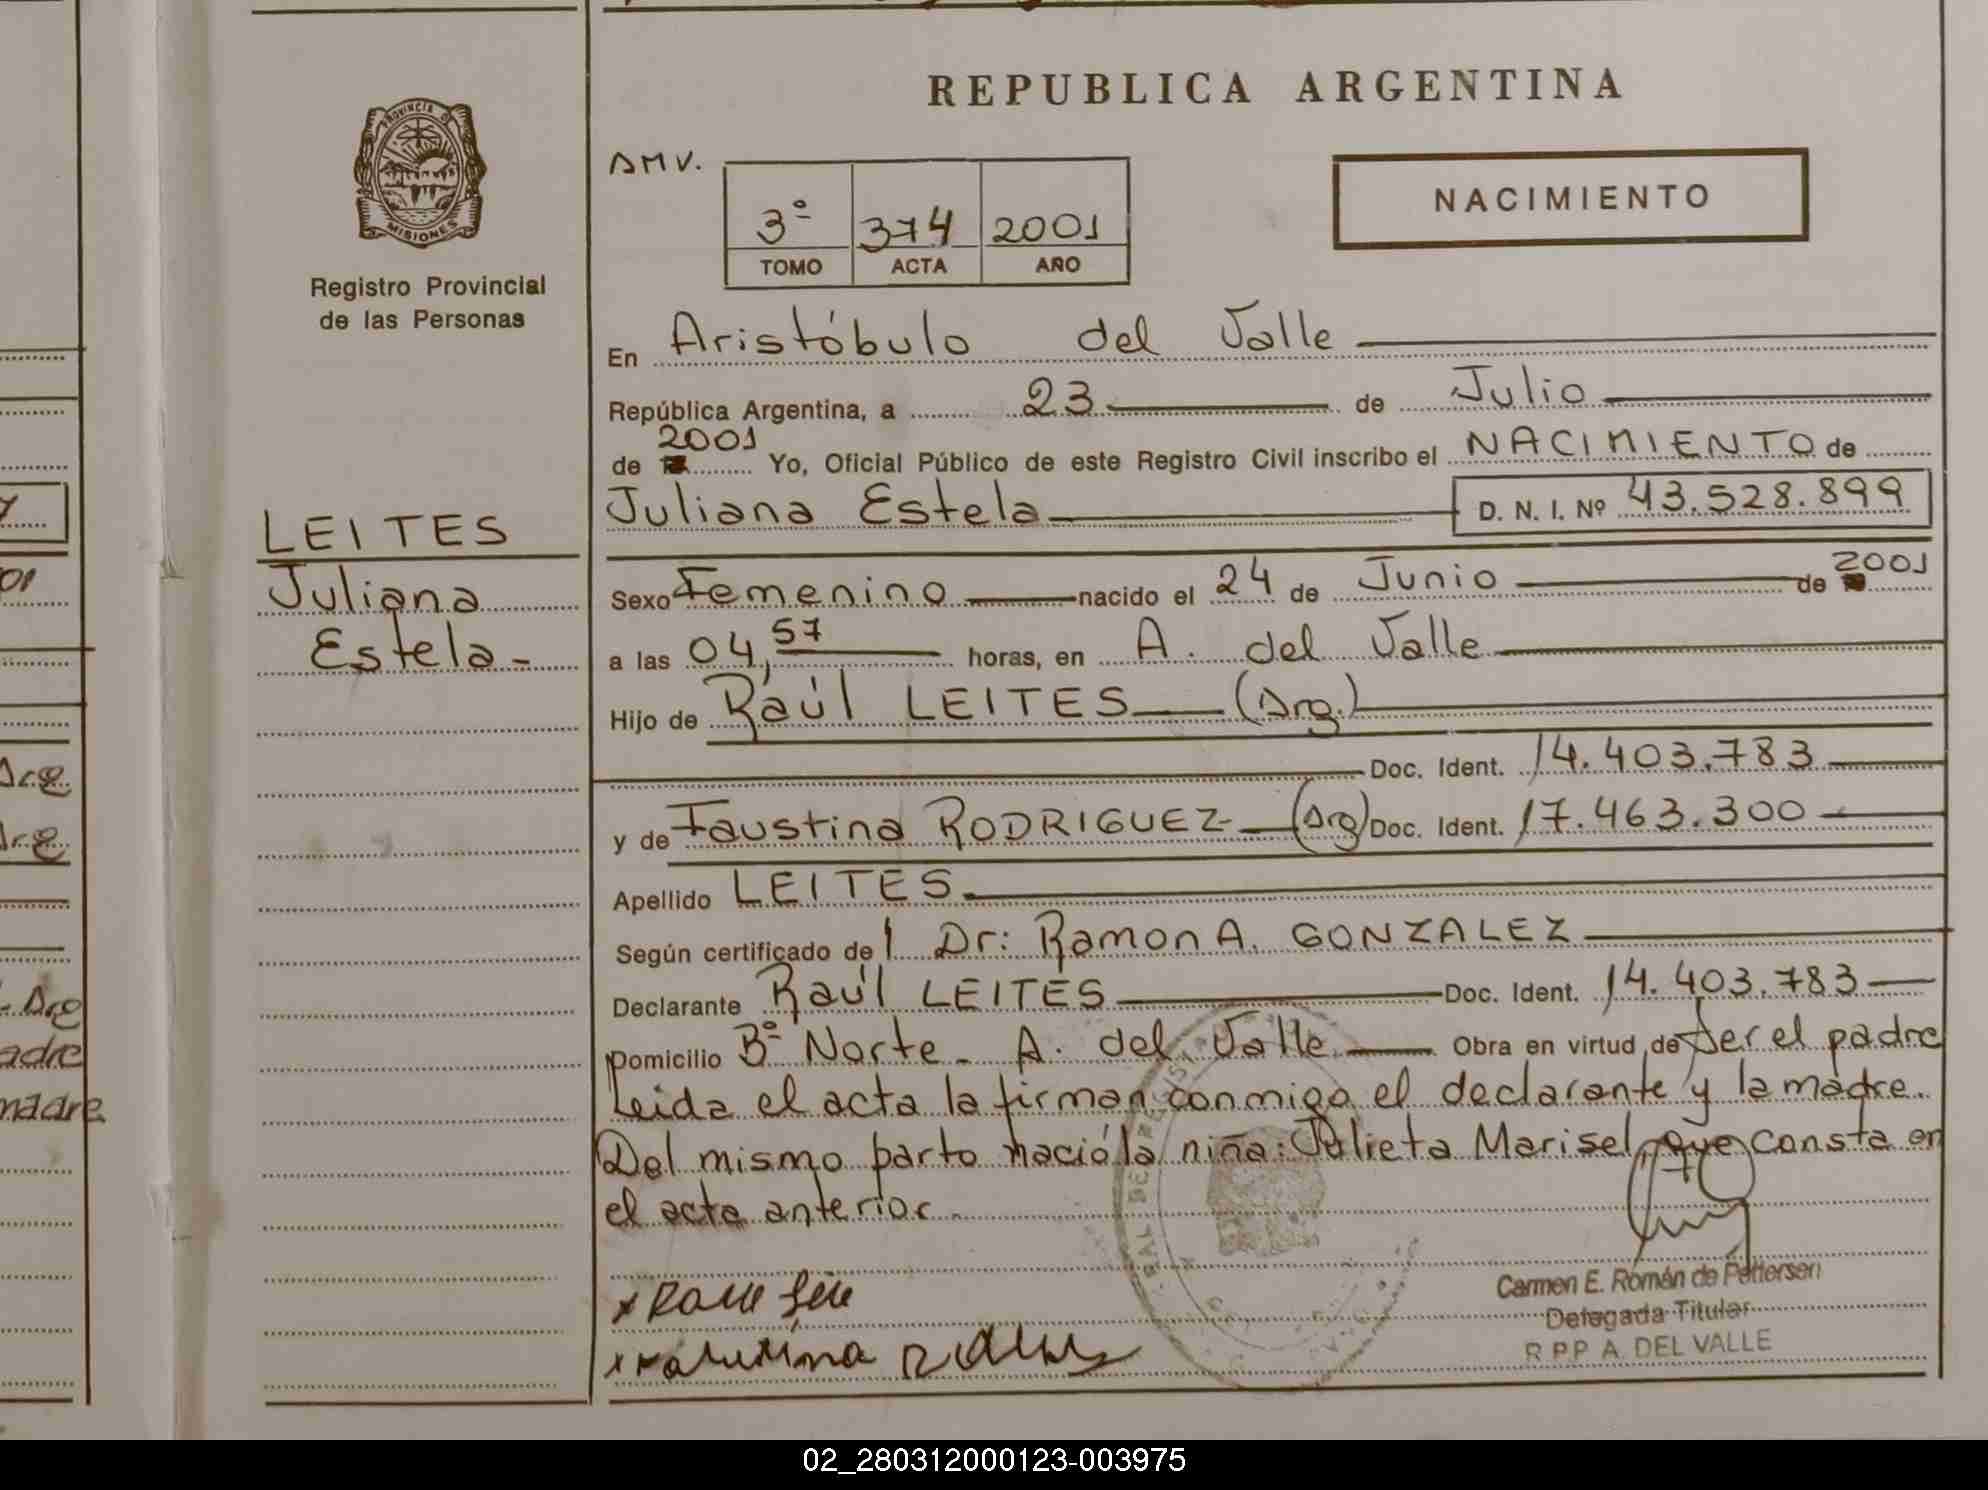 REPUBLICA ARGENTINA
PROVINCIA DE
MISIONES
Registro Provincial
de las Personas
AMV.
3º 374 2001
TOMO ACTA AÑO
NACIMIENTO
En Aristóbulo del Valle
República Argentina, a 23 de Julio
de 2001 Yo, Oficial Público de este Registro Civil inscribo el NACIMIENTO de
Juliana Estela D. N. I. Nº 43.528.899
LEITES
Juliana
Estela-
Sexo Femenino nacido el 24 de Junio de 2001
a las 04,57 horas, en A. del Valle
Hijo de Raúl LEITES (Arg.)
Doc. Ident. 14.403.783
y de Faustina RODRIGUEZ (Arg) Doc. Ident. 17.463.300
Apellido LEITES
Según certificado de l Dr: Ramon A. GONZALEZ
Declarante Raúl LEITES Doc. Ident. 14.403.783
Domicilio Bº Norte - A. del Valle Obra en virtud de ser el padre
Leida el acta la firman conmigo el declarante y la madre.
Del mismo parto nació la niña: Julieta Marisel, que consta en
el acta anterior.
Carmen E. Román de Pettersen
Delegada Titular
R.P.P. A. DEL VALLE
Arg
Arg
Arg
adre
madre
02_280312000123-003975